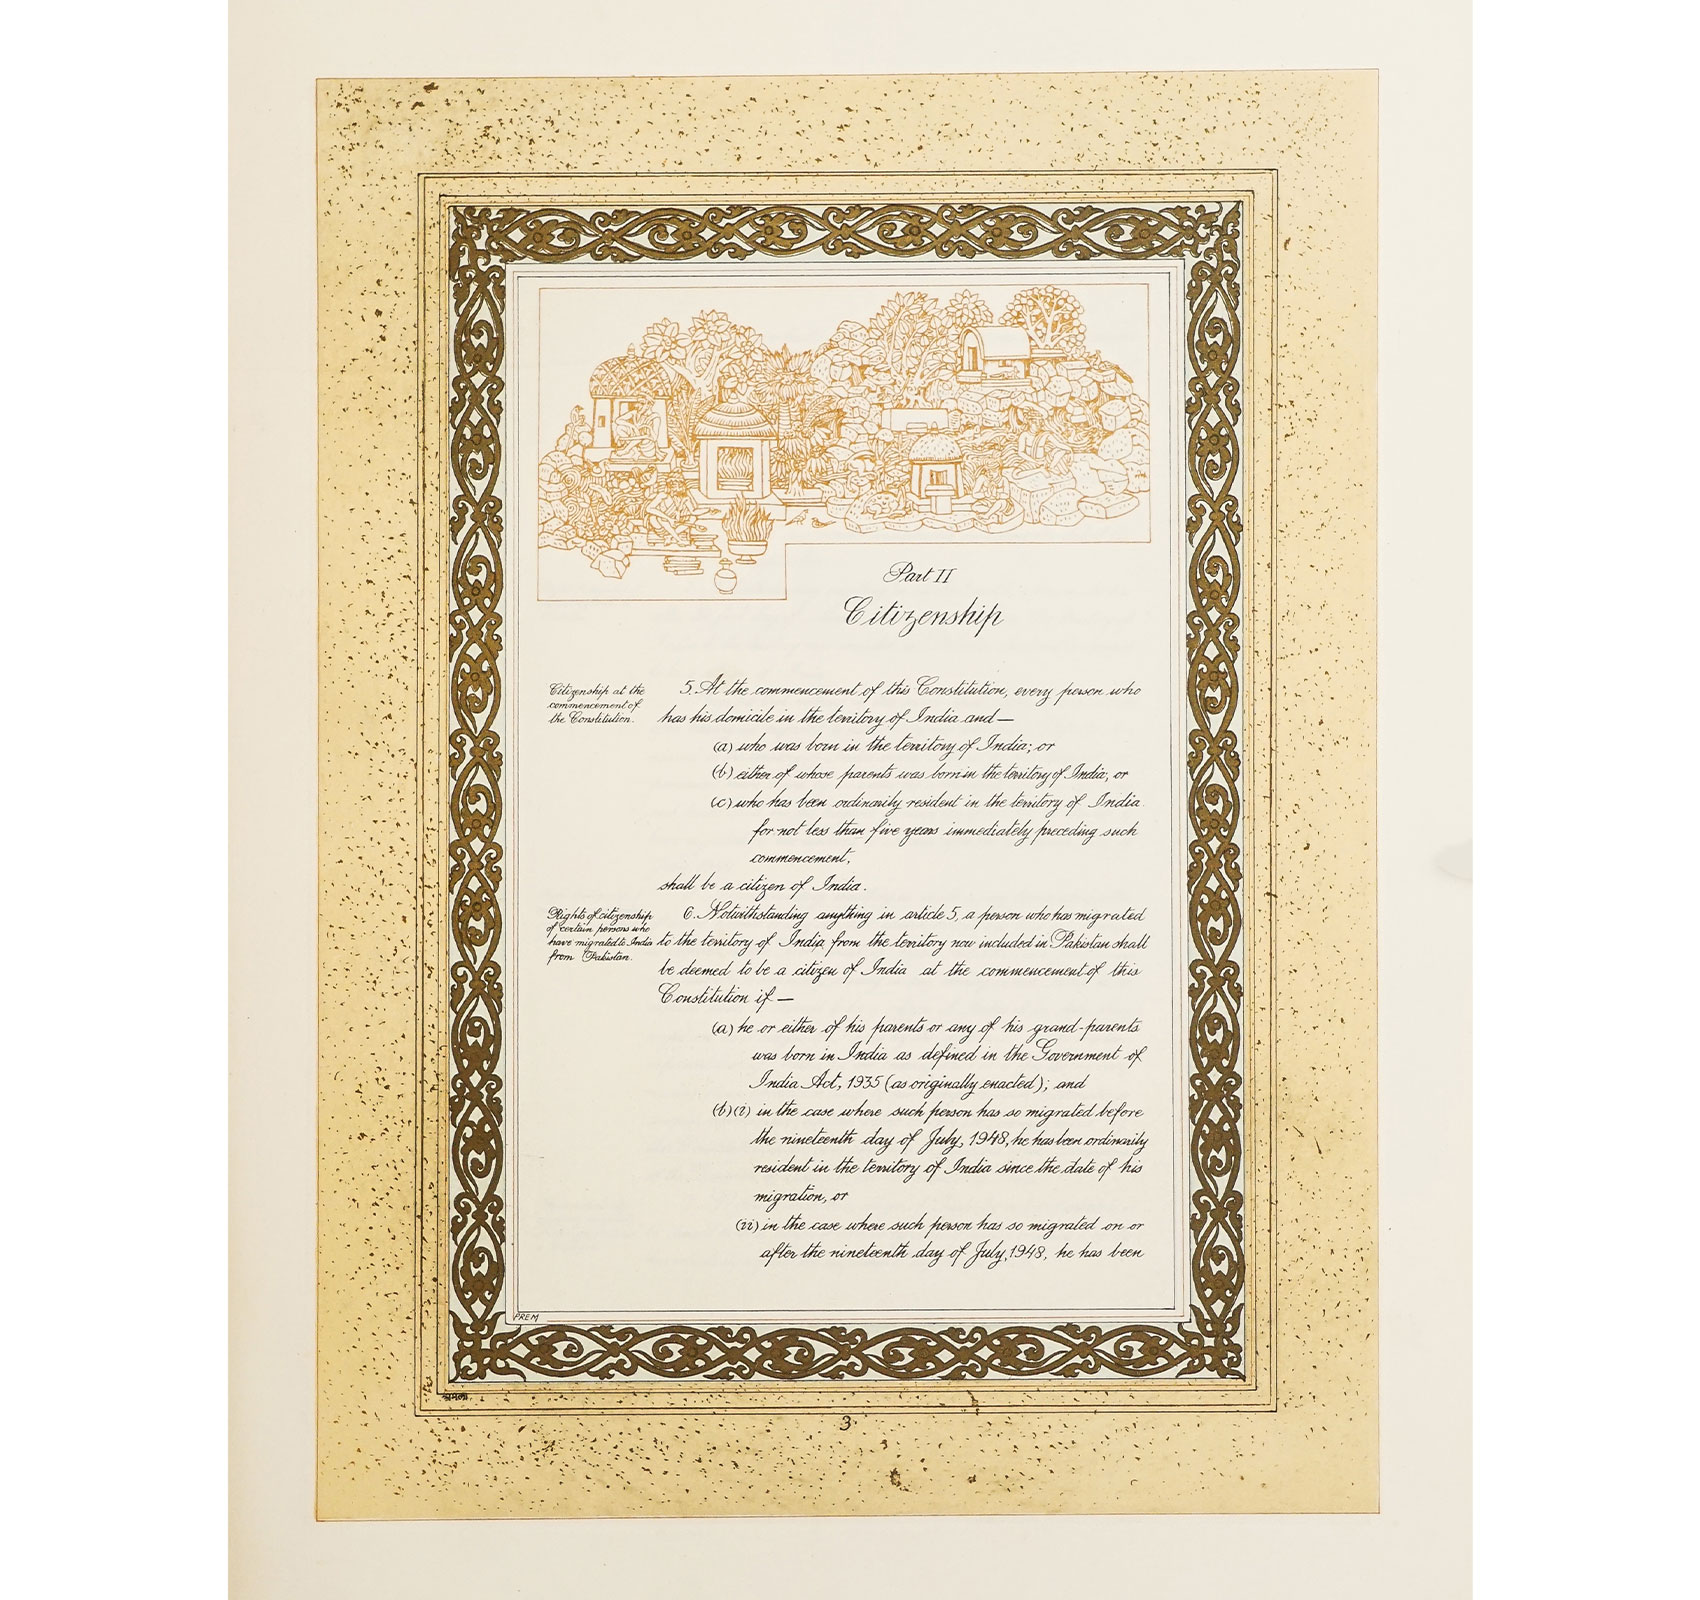 Part II
Citizenship
Citizenship at the
commencement of
the Constitution.
5. At the commencement of this Constitution, every person who
has his domicile in the territory of India and —
(a) who was born in the territory of India; or
(b) either of whose parents was born in the territory of India; or
(c) who has been ordinarily resident in the territory of India
for not less than five years immediately preceding such
commencement,
shall be a citizen of India.
Rights of citizenship
of certain persons who
have migrated to India
from Pakistan.
6. Notwithstanding anything in article 5, a person who has migrated
to the territory of India from the territory now included in Pakistan shall
be deemed to be a citizen of India at the commencement of this
Constitution if —
(a) he or either of his parents or any of his grand-parents
was born in India as defined in the Government of
India Act, 1935 (as originally enacted); and
(b) (i) in the case where such person has so migrated before
the nineteenth day of July, 1948, he has been ordinarily
resident in the territory of India since the date of his
migration, or
(ii) in the case where such person has so migrated on or
after the nineteenth day of July, 1948, he has been
PREM
3